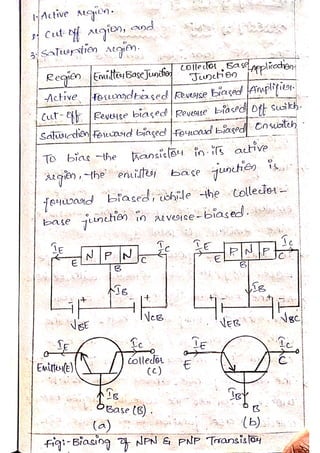 1. Active region.
2. Cut-off region, and
3. Saturation region.
Region Emitter Base Junction Collector Base Junction Application
Active Forward biased Reverse biased Amplifier.
Cut-off Reverse biased Reverse biased Off switch.
Saturation Forward biased Forward biased On switch
To bias the transistor in its active
region, the emitter base junction is
forward biased, while the collector-
base junction in reverse-biased.
IE IC IE IC
E N P N C E P N P C
B B
IB IB
VBE VCB VEB VBC
IE IC IE IC
Emitter(E) Collector (C) E C
IB IB
Base (B). B
(a) (b)
Fig:- Biasing of NPN & PNP Transistor